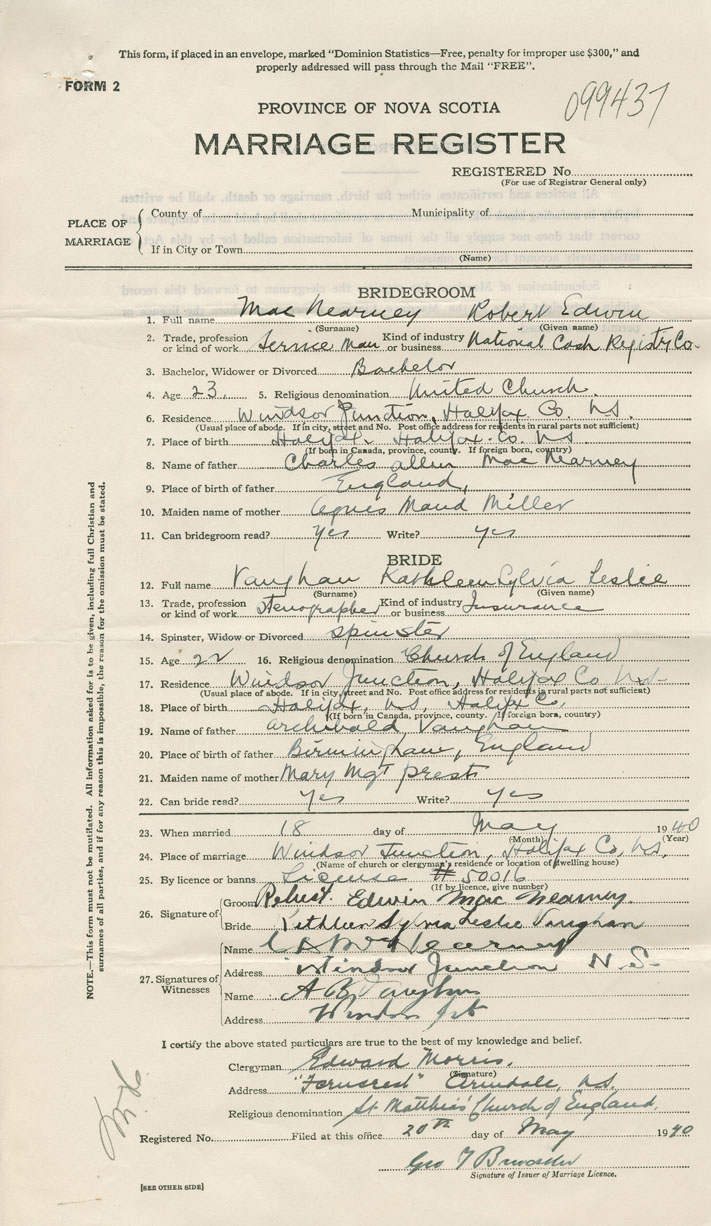 This form, if placed in an envelope, marked "Dominion Statistics—Free, penalty for improper use $300," and
properly addressed will pass through the Mail "FREE".
FORM 2
099437
PROVINCE OF NOVA SCOTIA
MARRIAGE REGISTER
REGISTERED No.
(For use of Registrar General only)
PLACE OF MARRIAGE
County of Municipality of
If in City or Town
(Name)
BRIDEGROOM
1. Full name Mac Nearney Robert Edwin
(Surname) (Given name)
2. Trade, profession or kind of work Service Man Kind of industry or business National Cash Registry Co.
3. Bachelor, Widower or Divorced Bachelor
4. Age 23, 5. Religious denomination United Church.
6. Residence Windsor Junction, Halifax Co. N.S.
(Usual place of abode. If in city, street and No. Post office address for residents in rural parts not sufficient)
7. Place of birth Halifax. Halifax Co. N.S
(If born in Canada, province, county. If foreign born, country)
8. Name of father Charles Allen Mac Nearney
9. Place of birth of father England,
10. Maiden name of mother Agnes Maud Miller
11. Can bridegroom read? Yes Write? Yes
BRIDE
12. Full name Vaughan Kathleen Sylvia Leslie
(Surname) (Given name)
13. Trade, profession or kind of work Stenographer Kind of industry or business Insurance
14. Spinster, Widow or Divorced Spinster
15. Age 22 16. Religious denomination Church of England
17. Residence Windsor Junction, Halifax Co N.S.
(Usual place of abode. If in city, street and No. Post office address for residents in rural parts not sufficient)
18. Place of birth Halifax, N.S, Halifax Co,
(If born in Canada, province, county. If foreign born, country)
19. Name of father Archibald Vaughan
20. Place of birth of father Birmingham, England
21. Maiden name of mother Mary Mgt Prest
22. Can bride read? Yes Write? Yes
23. When married 18 day of May 1940
(Month) (Year)
24. Place of marriage Windsor Junction, Halifax Co, N.S,
(Name of church or clergyman's residence or location of dwelling house)
25. By licence or banns License # 50016
(If by licence, give number)
26. Signature of
Groom Robert Edwin Mac Nearney.
Bride Kathleen Sylvia Leslie Vaughan
27. Signatures of Witnesses
Name Nearney
Address Windsor Junction N.S.
Name A B Vaughan
Address Windsor Jct
I certify the above stated particulars are true to the best of my knowledge and belief.
Clergyman Edward Morris.
(Signature)
Address "Ferncrest" Armdale, N.S.
Religious denomination St Matthias' Church of England,
Registered No. Filed at this office 20th day of May 1940
Geo
Signature of Issuer of Marriage Licence.
[SEE OTHER SIDE]
NOTE.—This form must not be mutilated. All information asked for is to be given, including full Christian and
surnames of all parties, and if for any reason this is impossible, the reason for the omission must be stated.